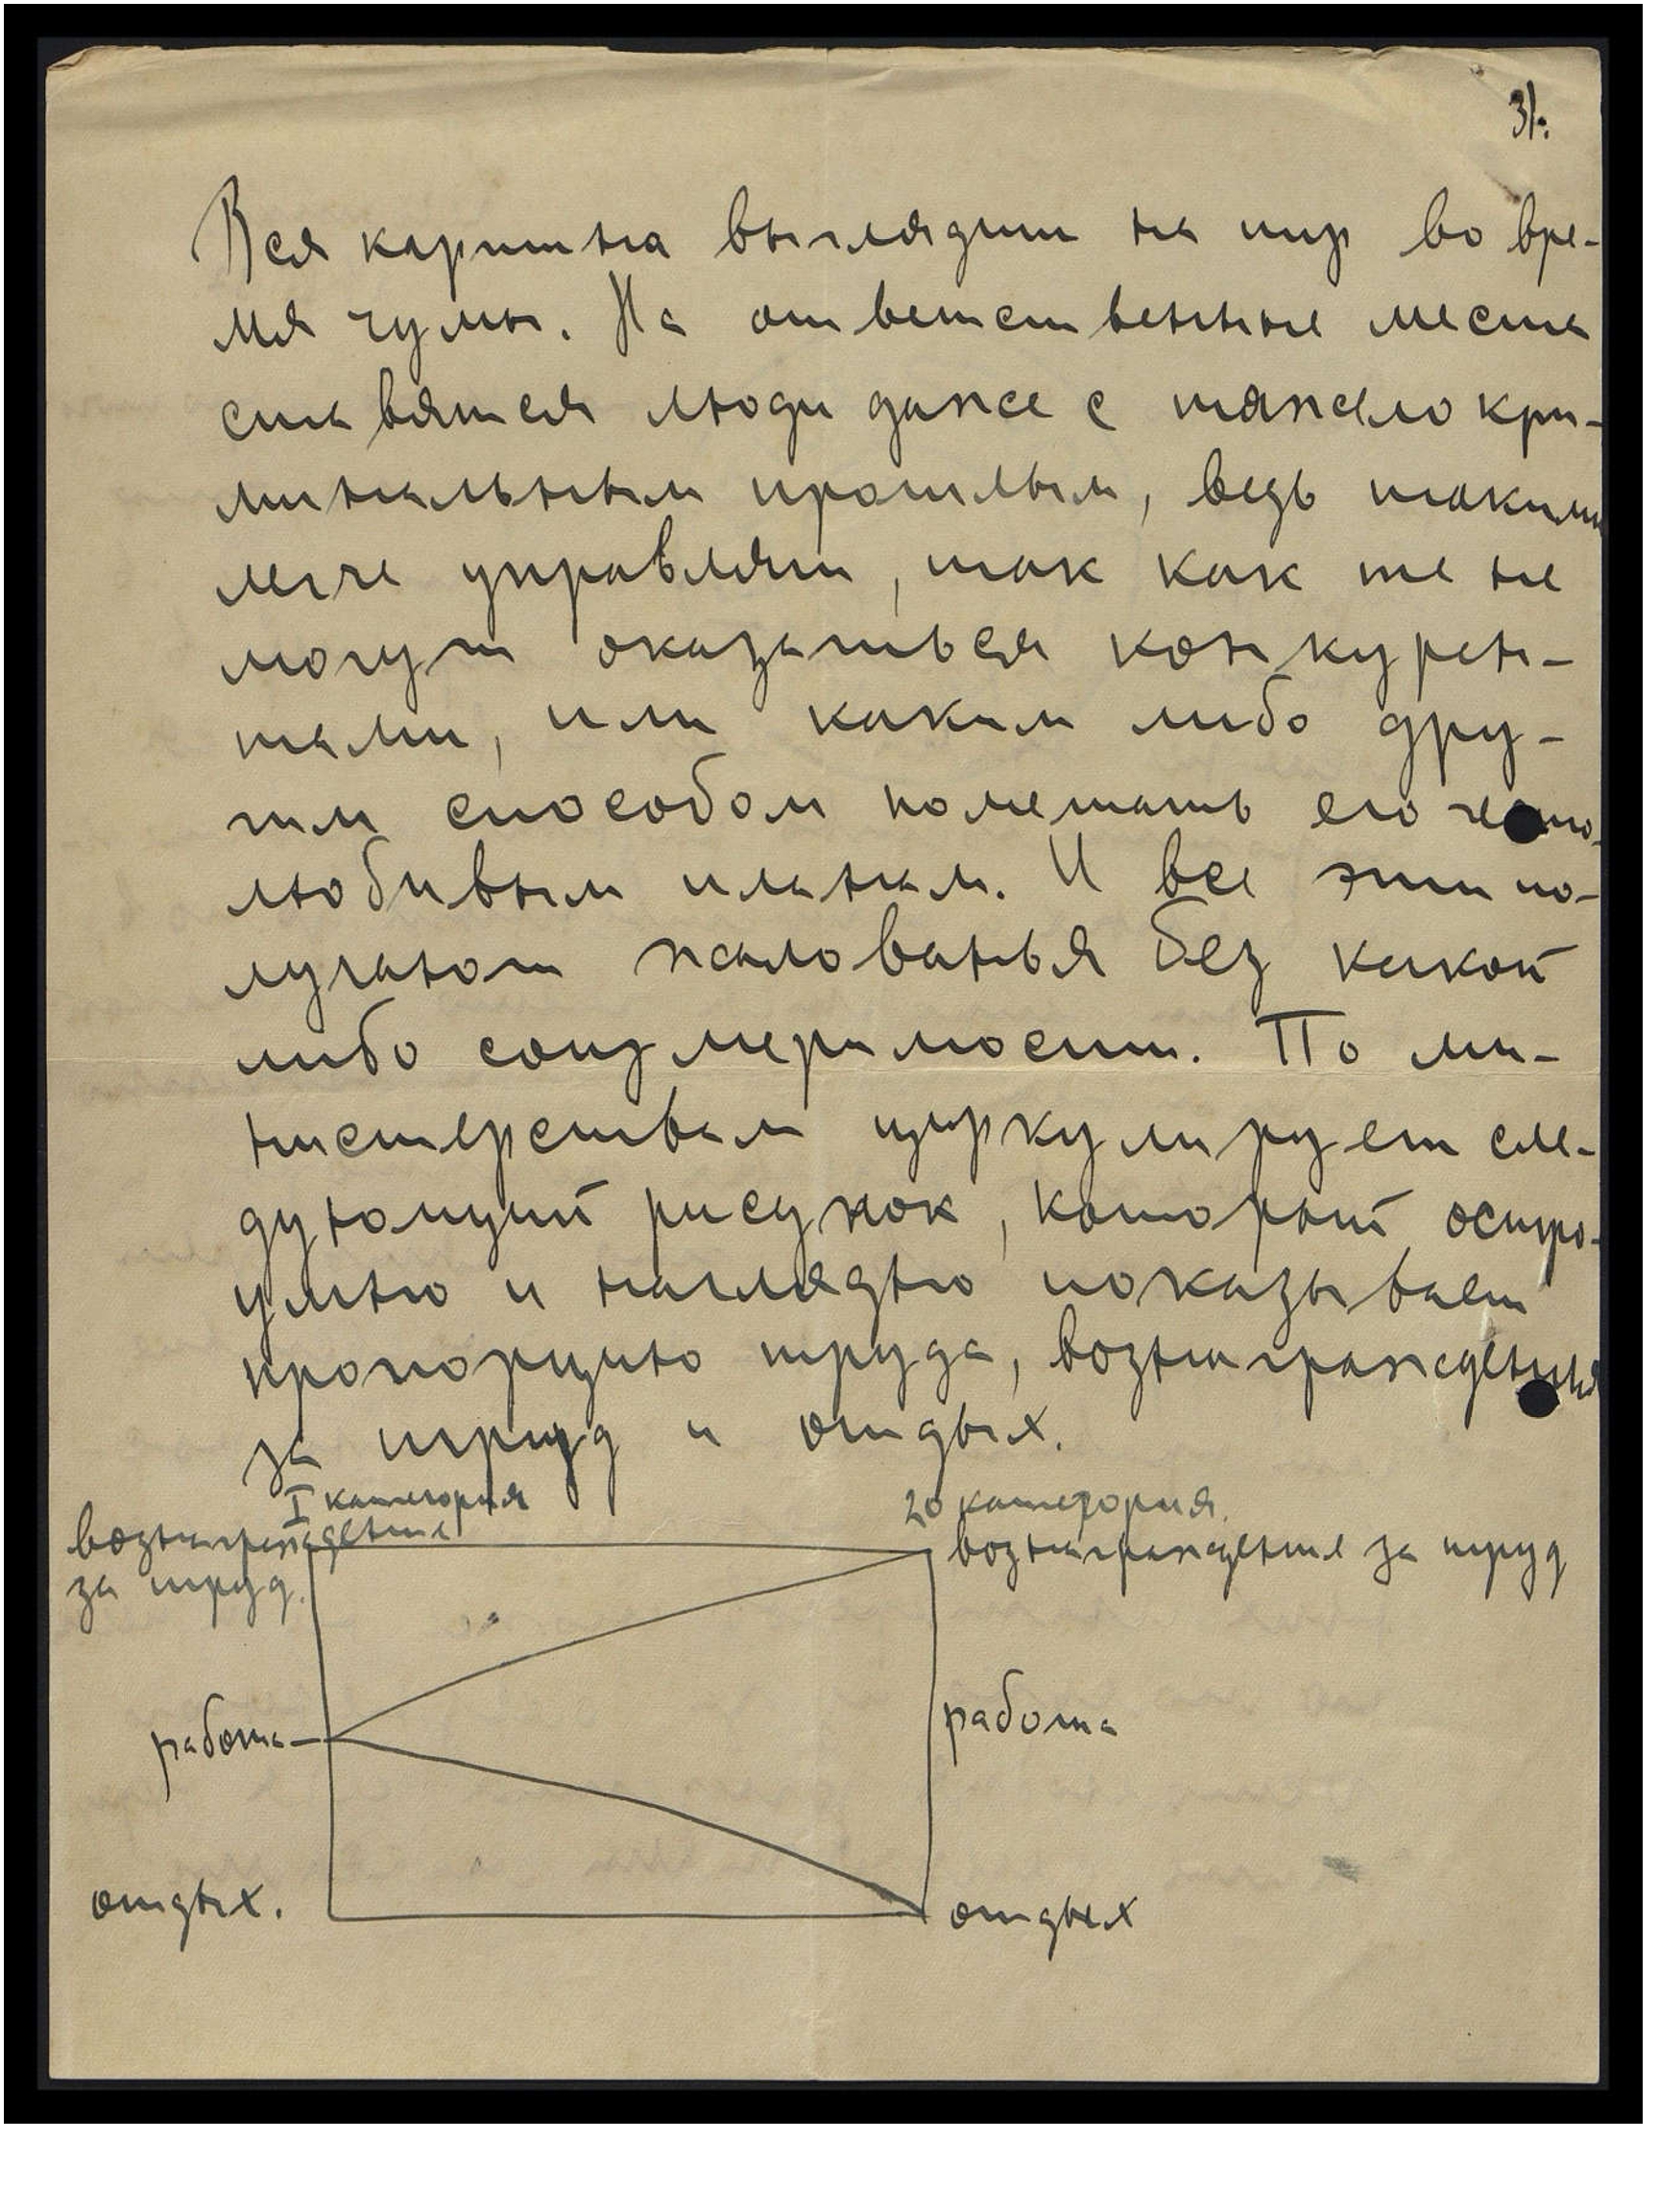 31.
Вся картина выглядит на пир во вре-
мя чумы. На ответственные места
ставятся люди даже с тяжело кри-
минальным прошлым, ведь такими
легче управлять, так как те не
могут оказаться конкурен-
тами, или каким либо дру-
гим способом помешать его често-
любивым планам. И все эти по-
лучают жалованья без какой
либо соизмеримости. По ми-
нистерствам циркулирует сле-
дующий рисунок, который остро-
умно и наглядно показывает
пропорцию труда, вознаграждения
за труд и отдых.
I категория 20 категория.
вознаграждение вознаграждение за труд
за труд.
работа работа
отдых. отдых